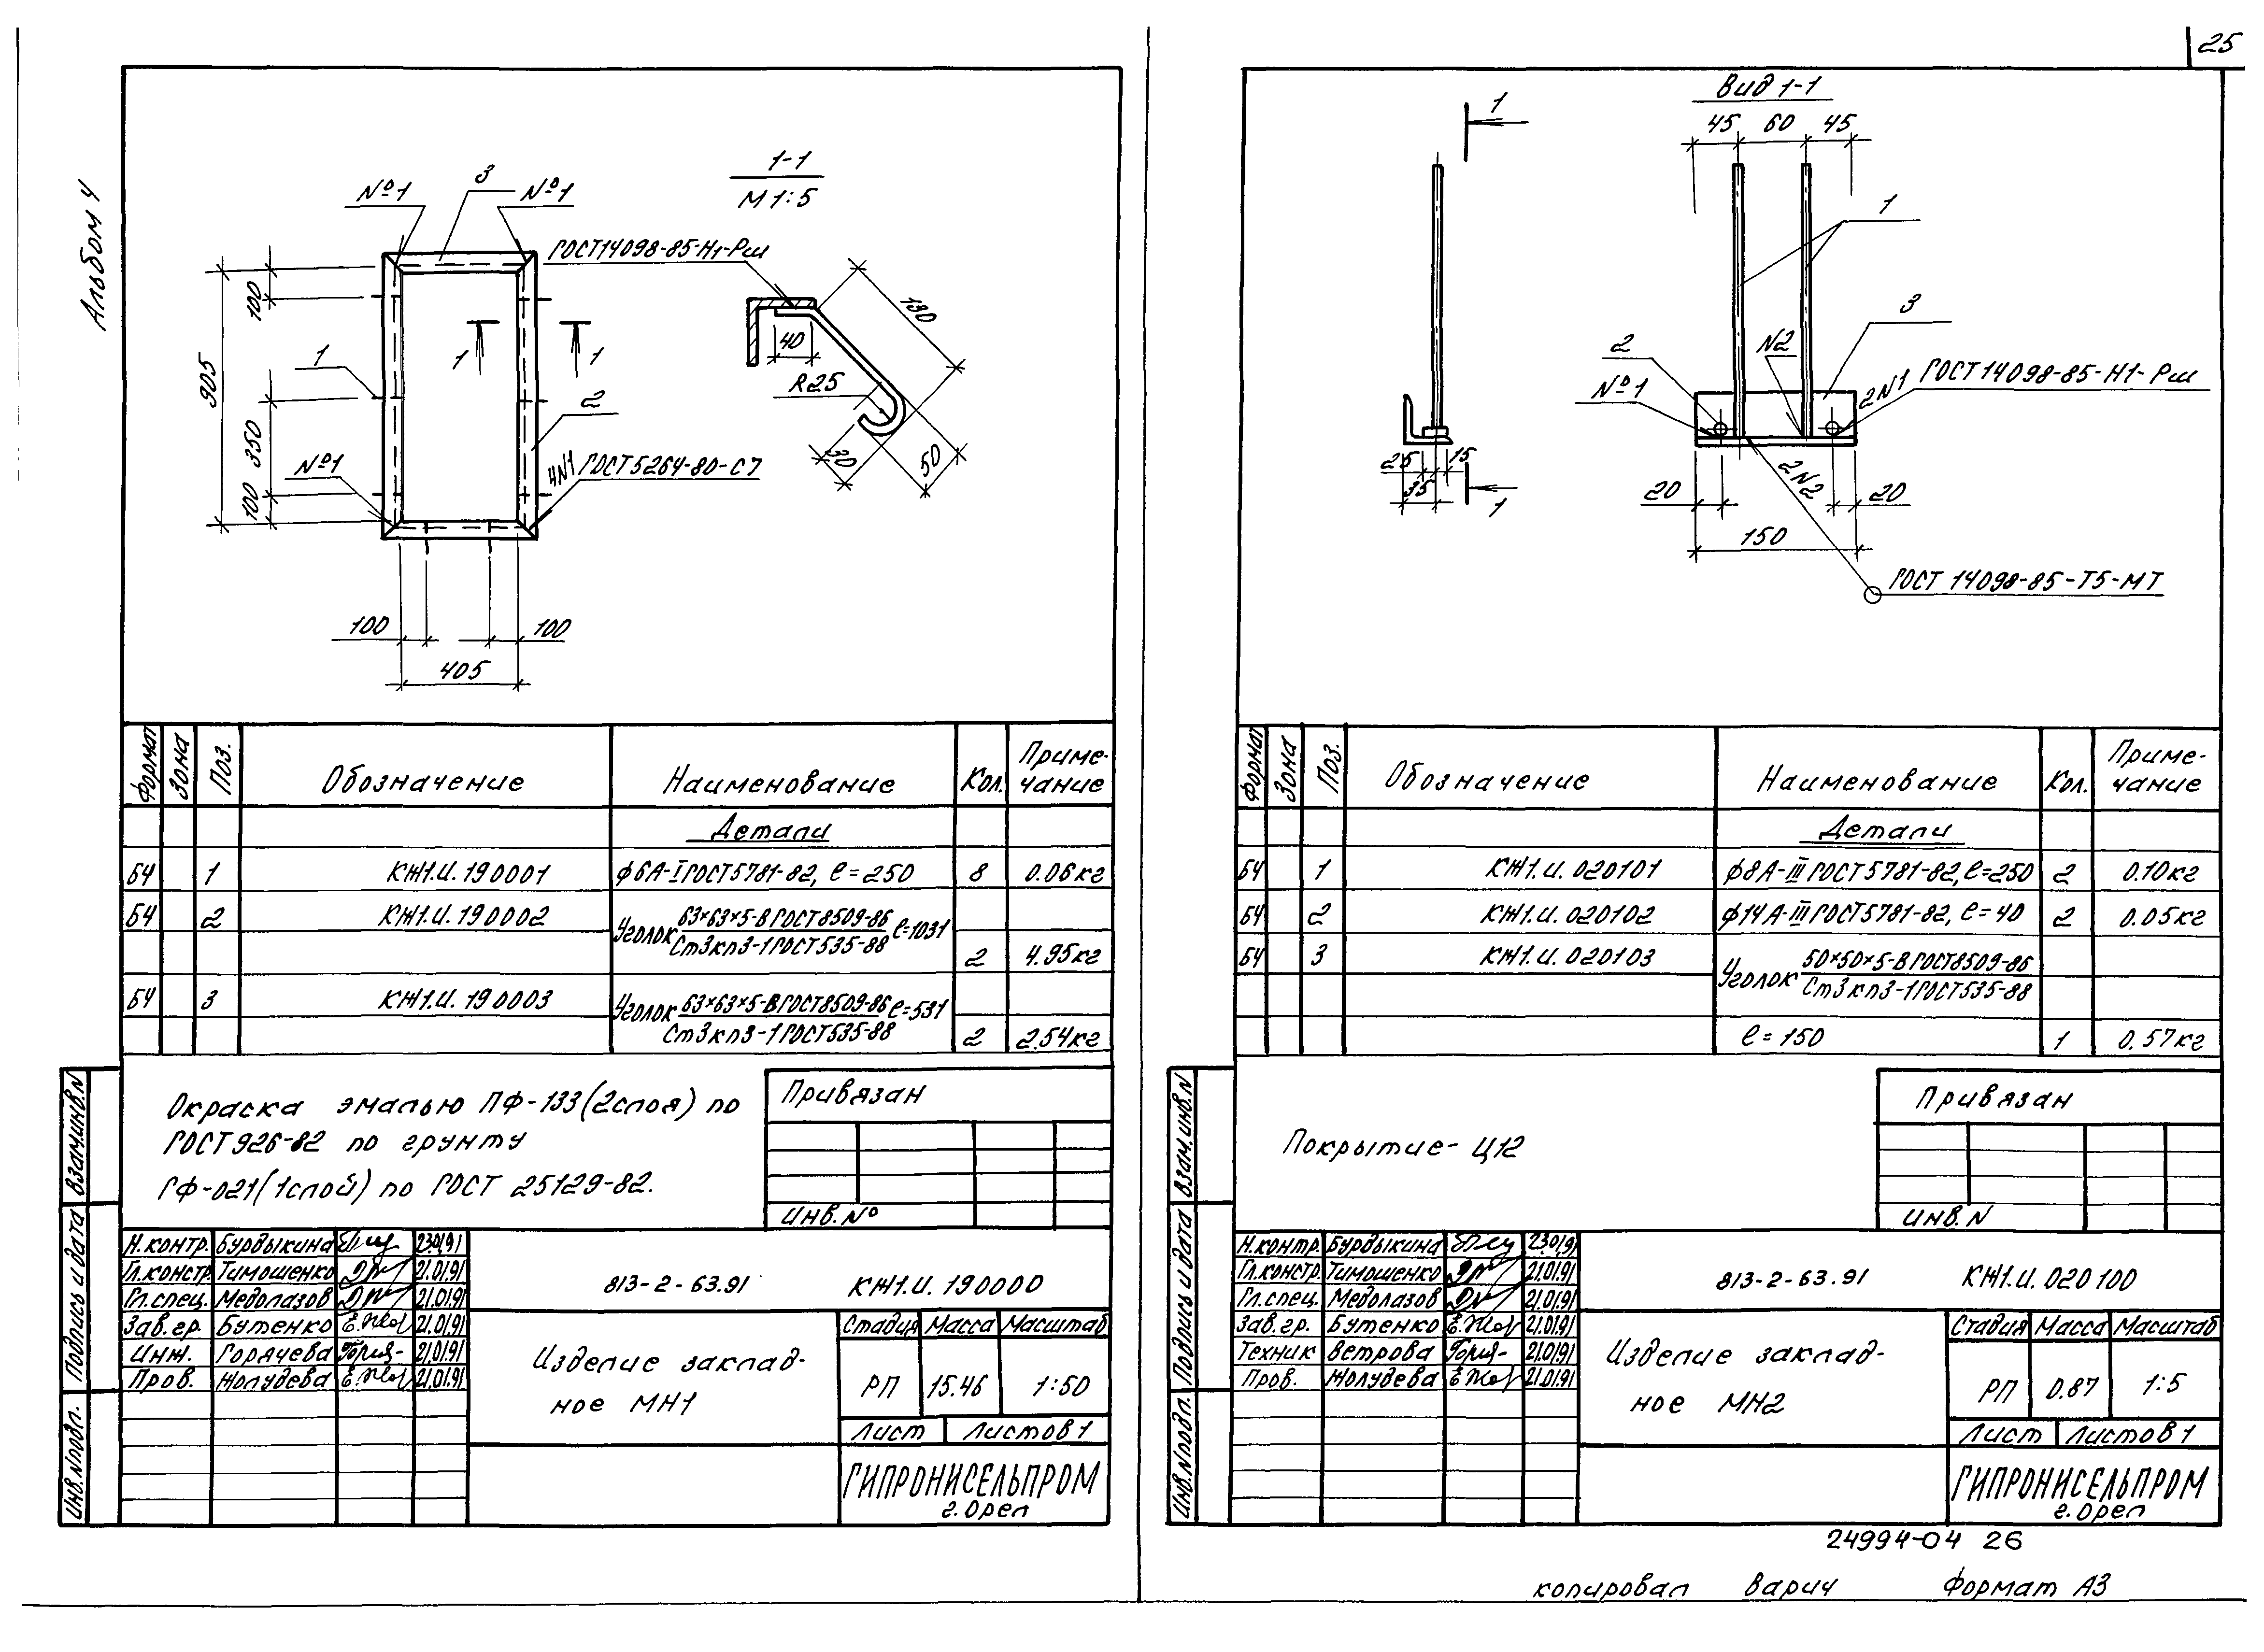 25
Альбом 4
№1
3
№1
1-1
М 1:5
ГОСТ14098-85-Н1-Рш
100
905
350
100
1
1
1
2
№1
4№1 ГОСТ5264-80-С7
100
100
405
40
R25
130
30
50
Формат Зона Поз. Обозначение Наименование Кол. Приме-
чание
Детали
БЧ 1 КЖ1.И.190001 ф6А-I ГОСТ5781-82, ℓ=250 8 0.06кг
БЧ 2 КЖ1.И.190002 Уголок 63×63×5-В ГОСТ8509-86
Ст3кп3-1 ГОСТ535-88 ℓ=1031 2 4.95кг
БЧ 3 КЖ1.И.190003 Уголок 63×63×5-В ГОСТ8509-86
Ст3кп3-1 ГОСТ535-88 ℓ=531 2 2.54кг
Окраска эмалью ПФ-133(2слоя) по
ГОСТ926-82 по грунту
ГФ-021(1слой) по ГОСТ 25129-82.
Привязан
Инв.№
Взам.инв.N
Подпись и дата
Инв.Nподл.
Н.контр. Бурдыкина 23.01.91
Гл.констр. Тимошенко 21.01.91
Гл.спец. Медолазов 21.01.91
Зав.гр. Бутенко 21.01.91
Инж. Горячева 21.01.91
Пров. Жолудева 21.01.91
813-2-63.91 КЖ1.И.190000
Изделие заклад-
ное МН1
Стадия Масса Масштаб
РП 15.46 1:50
Лист Листов 1
ГИПРОНИСЕЛЬПРОМ
г. Орел
Вид 1-1
45 60 45
1
1
1
2
№1
N2
3
2N1 ГОСТ14098-85-Н1-Рш
25 15
35
20
2N2
20
150
ГОСТ 14098-85-Т5-МТ
Формат Зона Поз. Обозначение Наименование Кол. Приме-
чание
Детали
БЧ 1 КЖ1.И.020101 ф8А-III ГОСТ5781-82, ℓ=250 2 0.10кг
БЧ 2 КЖ1.И.020102 ф14А-III ГОСТ5781-82, ℓ=40 2 0.05кг
БЧ 3 КЖ1.И.020103 Уголок 50×50×5-В ГОСТ8509-86
Ст3кп3-1 ГОСТ535-88
ℓ=150 1 0,57кг
Покрытие- Ц12
Привязан
Инв.N
Взам.инв.N
Подпись и дата
Инв.Nподл.
Н.контр. Бурдыкина 23.01.91
Гл.констр. Тимошенко 21.01.91
Гл.спец. Медолазов 21.01.91
Зав.гр. Бутенко 21.01.91
Техник Ветрова 21.01.91
Пров. Жолудева 21.01.91
813-2-63.91 КЖ1.И.020100
Изделие заклад-
ное МН2
Стадия Масса Масштаб
РП 0.87 1:5
Лист Листов 1
ГИПРОНИСЕЛЬПРОМ
г. Орел
24994-04 26
копировал Варич Формат А3